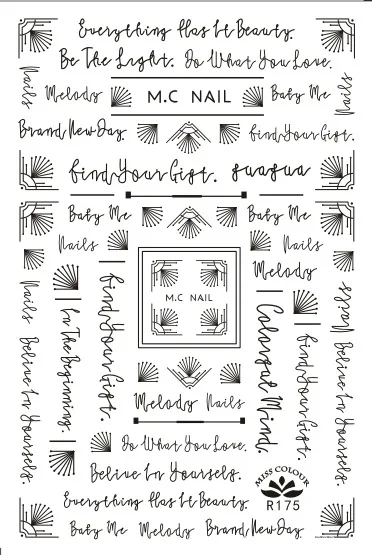 Everything Has It Beauty.
Be The Light. Do What You Love.
Nails Melody M.C NAIL Baby Me Nails
Brand New Day. Find Your Gift.
Find Your Gift. guagua
Baby Me Baby Me
Nails Nails
Melody
M.C NAIL
Nails
Believe In Yourself.
In The Beginning.
Find Your Gift.
Colorful Mind.
Find Your Gift.
Nails
Believe In Yourself.
Melody Nails
Do What You Love.
Believe In Yourself.
MISS COLOUR
R175
Everything Has It Beauty.
Baby Me Melody Brand New Day.